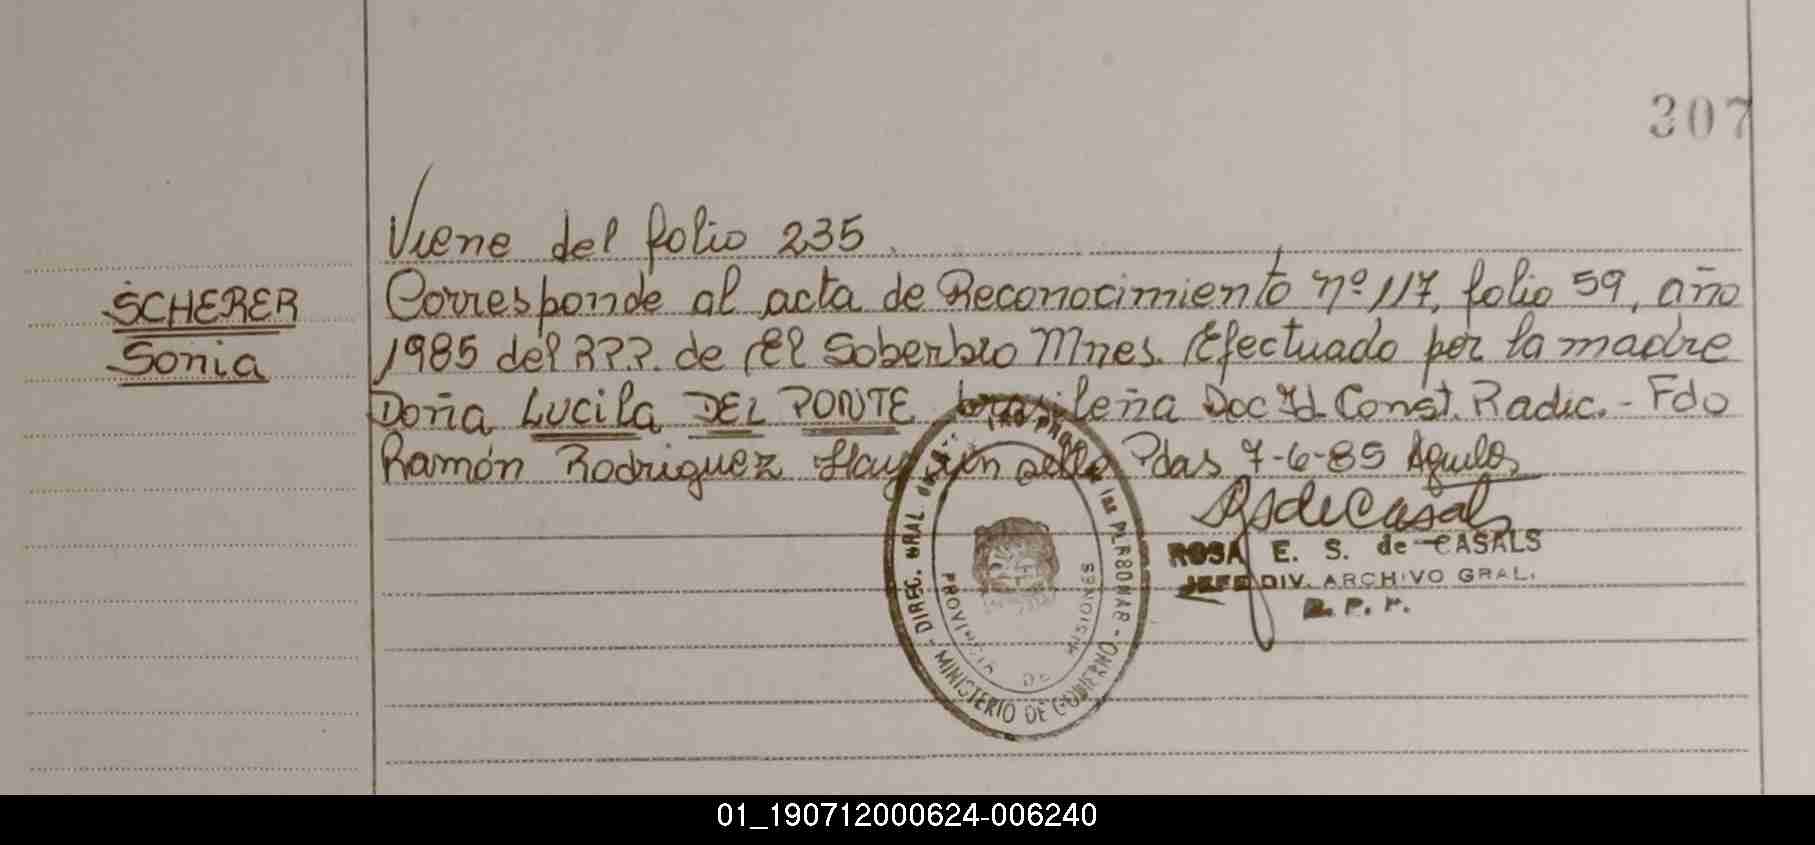 307
Viene del folio 235.
SCHERER
Sonia
Corresponde al acta de Reconocimiento nº 117, folio 59, año
1985 del R.P.P. de El Soberbio Mnes. Efectuado por la madre
Doña Lucila DEL PONTE brasileña Doc Id Const. Radic. - Fdo
Ramón Rodriguez Hay un sello Pdas 7-6-85
ROSA E. S. de CASALS
JEFE DIV. ARCHIVO GRAL.
R. P. P.
DIREC. GRAL. de las PERSONAS - MINISTERIO DE GOBIERNO -
PROVINCIA DE MISIONES
01_190712000624-006240